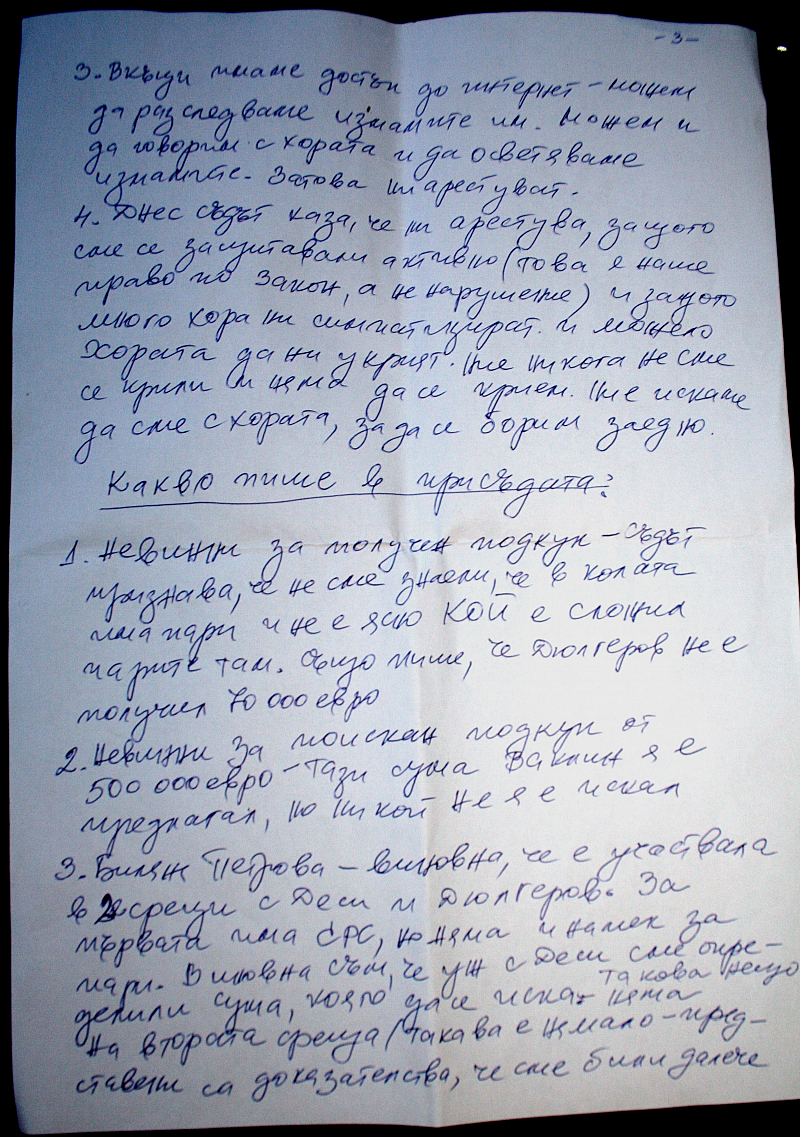 -3-
3. Вкъщи имаме достъп до интернет - можем
да разследваме измамите им. Можем и
да говорим с хората и да осветяваме
измамите. Затова ни арестуват.
4. Днес съдът каза, че ни арестува, защото
сме се защитавали активно (това е наше
право по закон, а не нарушение) и защото
много хора ни симпатизират и можело
хората да ни укрият. Ние никога не сме
се крили и няма да се крием. Ние искаме
да сме с хората, за да се борим заедно.
Какво пише в присъдата?
1. Невинни за получен подкуп - съдът
признава, че не сме знаели, че в колата
има пари и не е ясно КОЙ е сложил
парите там. Също пише, че Дюлгеров не е
получил 70 000 евро
2. Невинни за поискан подкуп от
500 000 евро - тази сума Ваклин я е
предлагал, но никой не я е искал
3. Биляна Петрова - виновна, че е участвала
в 2 срещи с Деси и Дюлгеров. За
първата има СРС, но няма и намек за
пари. Виновна съм, че уж с Деси сме опре-
делили сума, която да се иска - такова нещо няма
На втората среща (такава е нямало - пред-
ставени са доказателства, че сме били далече